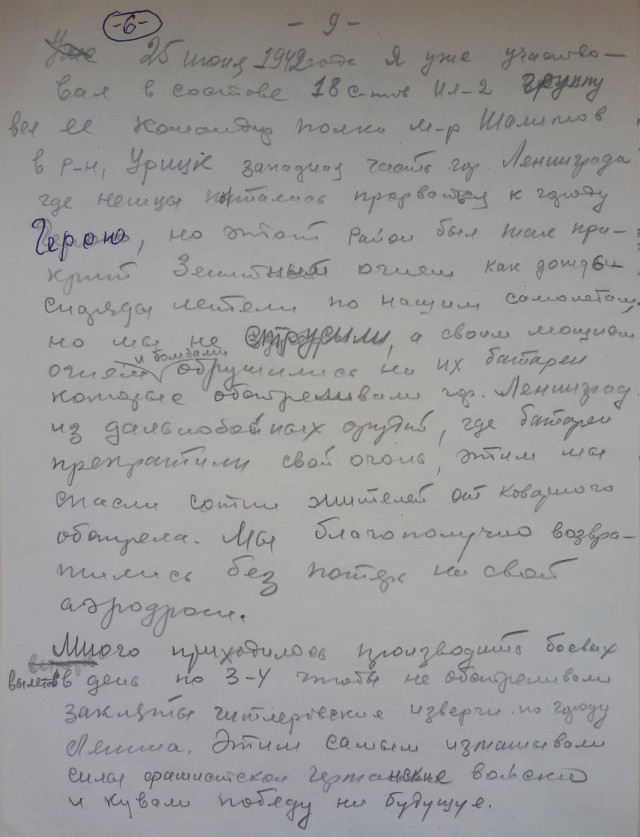 -6- - 9 -
25 июня 1942 года я уже участво-
вал в составе 18 с-тов Ил-2 группу
вел ее командир полка м-р Шалимов
в р-н, Урицк западная часть гор. Ленинграда
где немцы пытались прорваться к городу
Герою, но этот район был так при-
крыт Зенитным огнем как дождь
снаряды летели по нашим самолетам,
но мы не струсили, а своим мощным
огнем и бомбами обрушились на их батареи
которые обстреливали гор. Ленинград
из дальнобойных орудий, где батареи
прекратили свой огонь, этим мы
спасли сотни жителей от коварного
обстрела. Мы благополучно возвра-
тились без потерь на свой
аэродром.
Много приходилось производить боевых
вылетов в день по 3-4 чтобы не обстреливали
закляты гитлеровские изверги по городу
Ленина. Этим самым изматывали
силы фашистской германские войска
и кували победу на будущее.